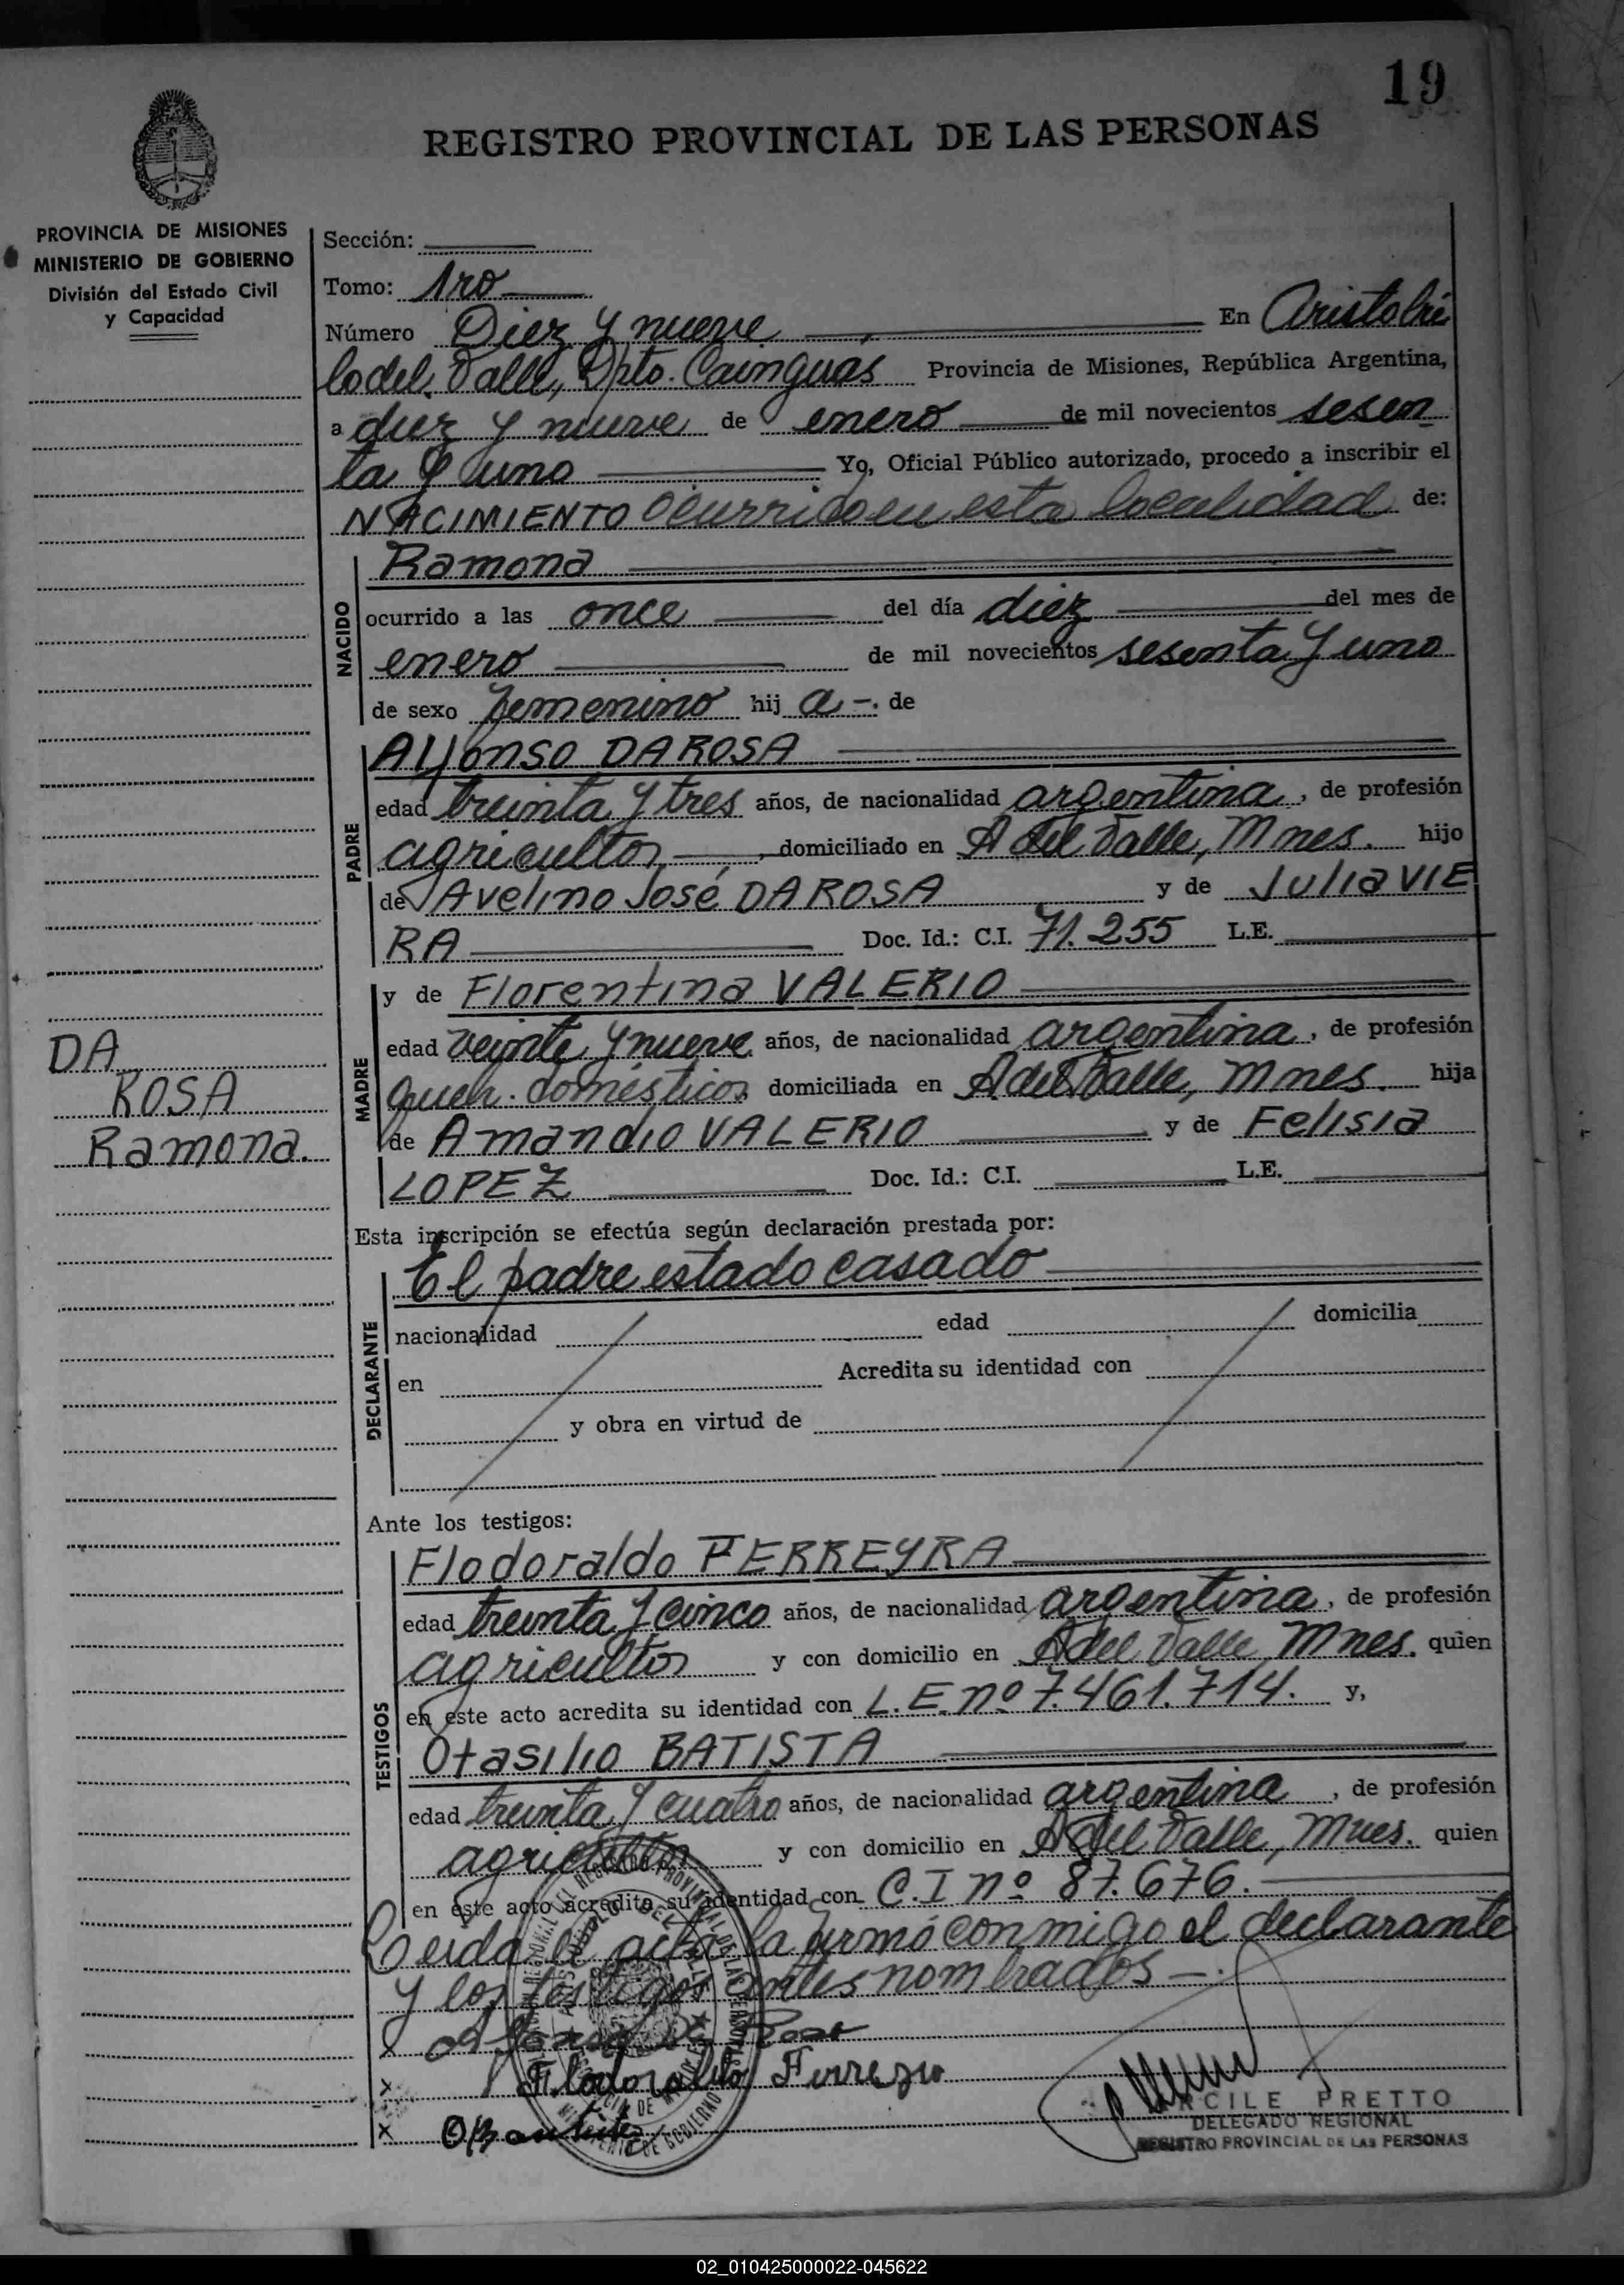 19
REGISTRO PROVINCIAL DE LAS PERSONAS
PROVINCIA DE MISIONES
MINISTERIO DE GOBIERNO
División del Estado Civil
y Capacidad
Sección:
Tomo: 1ro
Número Diez y nueve En Aristóbu
lo del Valle, Dpto. Cainguás Provincia de Misiones, República Argentina,
a diez y nueve de enero de mil novecientos sesen
ta y uno Yo, Oficial Público autorizado, procedo a inscribir el
NACIMIENTO ocurrido en esta localidad de:
NACIDO
Ramona
ocurrido a las once del día diez del mes de
enero de mil novecientos sesenta y uno
de sexo femenino hij a -. de
PADRE
Alfonso DA ROSA
edad treinta y tres años, de nacionalidad argentina, de profesión
agricultor, domiciliado en A del Valle, Mnes. hijo
de Avelino José DA ROSA y de Julia VIE
RA Doc. Id.: C.I. 71.255 L.E.
MADRE
y de Florentina VALERIO
edad veinte y nueve años, de nacionalidad argentina, de profesión
queh. domésticos domiciliada en A del Valle, Mnes. hija
de Amancio VALERIO y de Felisia
LOPEZ Doc. Id.: C.I. L.E.
DA
ROSA
Ramona.
Esta inscripción se efectúa según declaración prestada por:
DECLARANTE
El padre estado casado
nacionalidad edad domicilia
en Acredita su identidad con
y obra en virtud de
Ante los testigos:
TESTIGOS
Flodoraldo FERREYRA
edad treinta y cinco años, de nacionalidad argentina, de profesión
agricultor y con domicilio en A del Valle, Mnes. quien
en este acto acredita su identidad con L.E. nº 7.461.714. y,
Otasilio BATISTA
edad treinta y cuatro años, de nacionalidad argentina, de profesión
agricultor y con domicilio en A del Valle, Mnes. quien
en este acto acredita su identidad con C.I nº 87.676.
Leida el acta la firmó conmigo el declarante
y los testigos antes nombrados -.
x Rosa
x Flodoraldo
x
PRETTO
DELEGADO REGIONAL
REGISTRO PROVINCIAL DE LAS PERSONAS
02_010425000022-045622